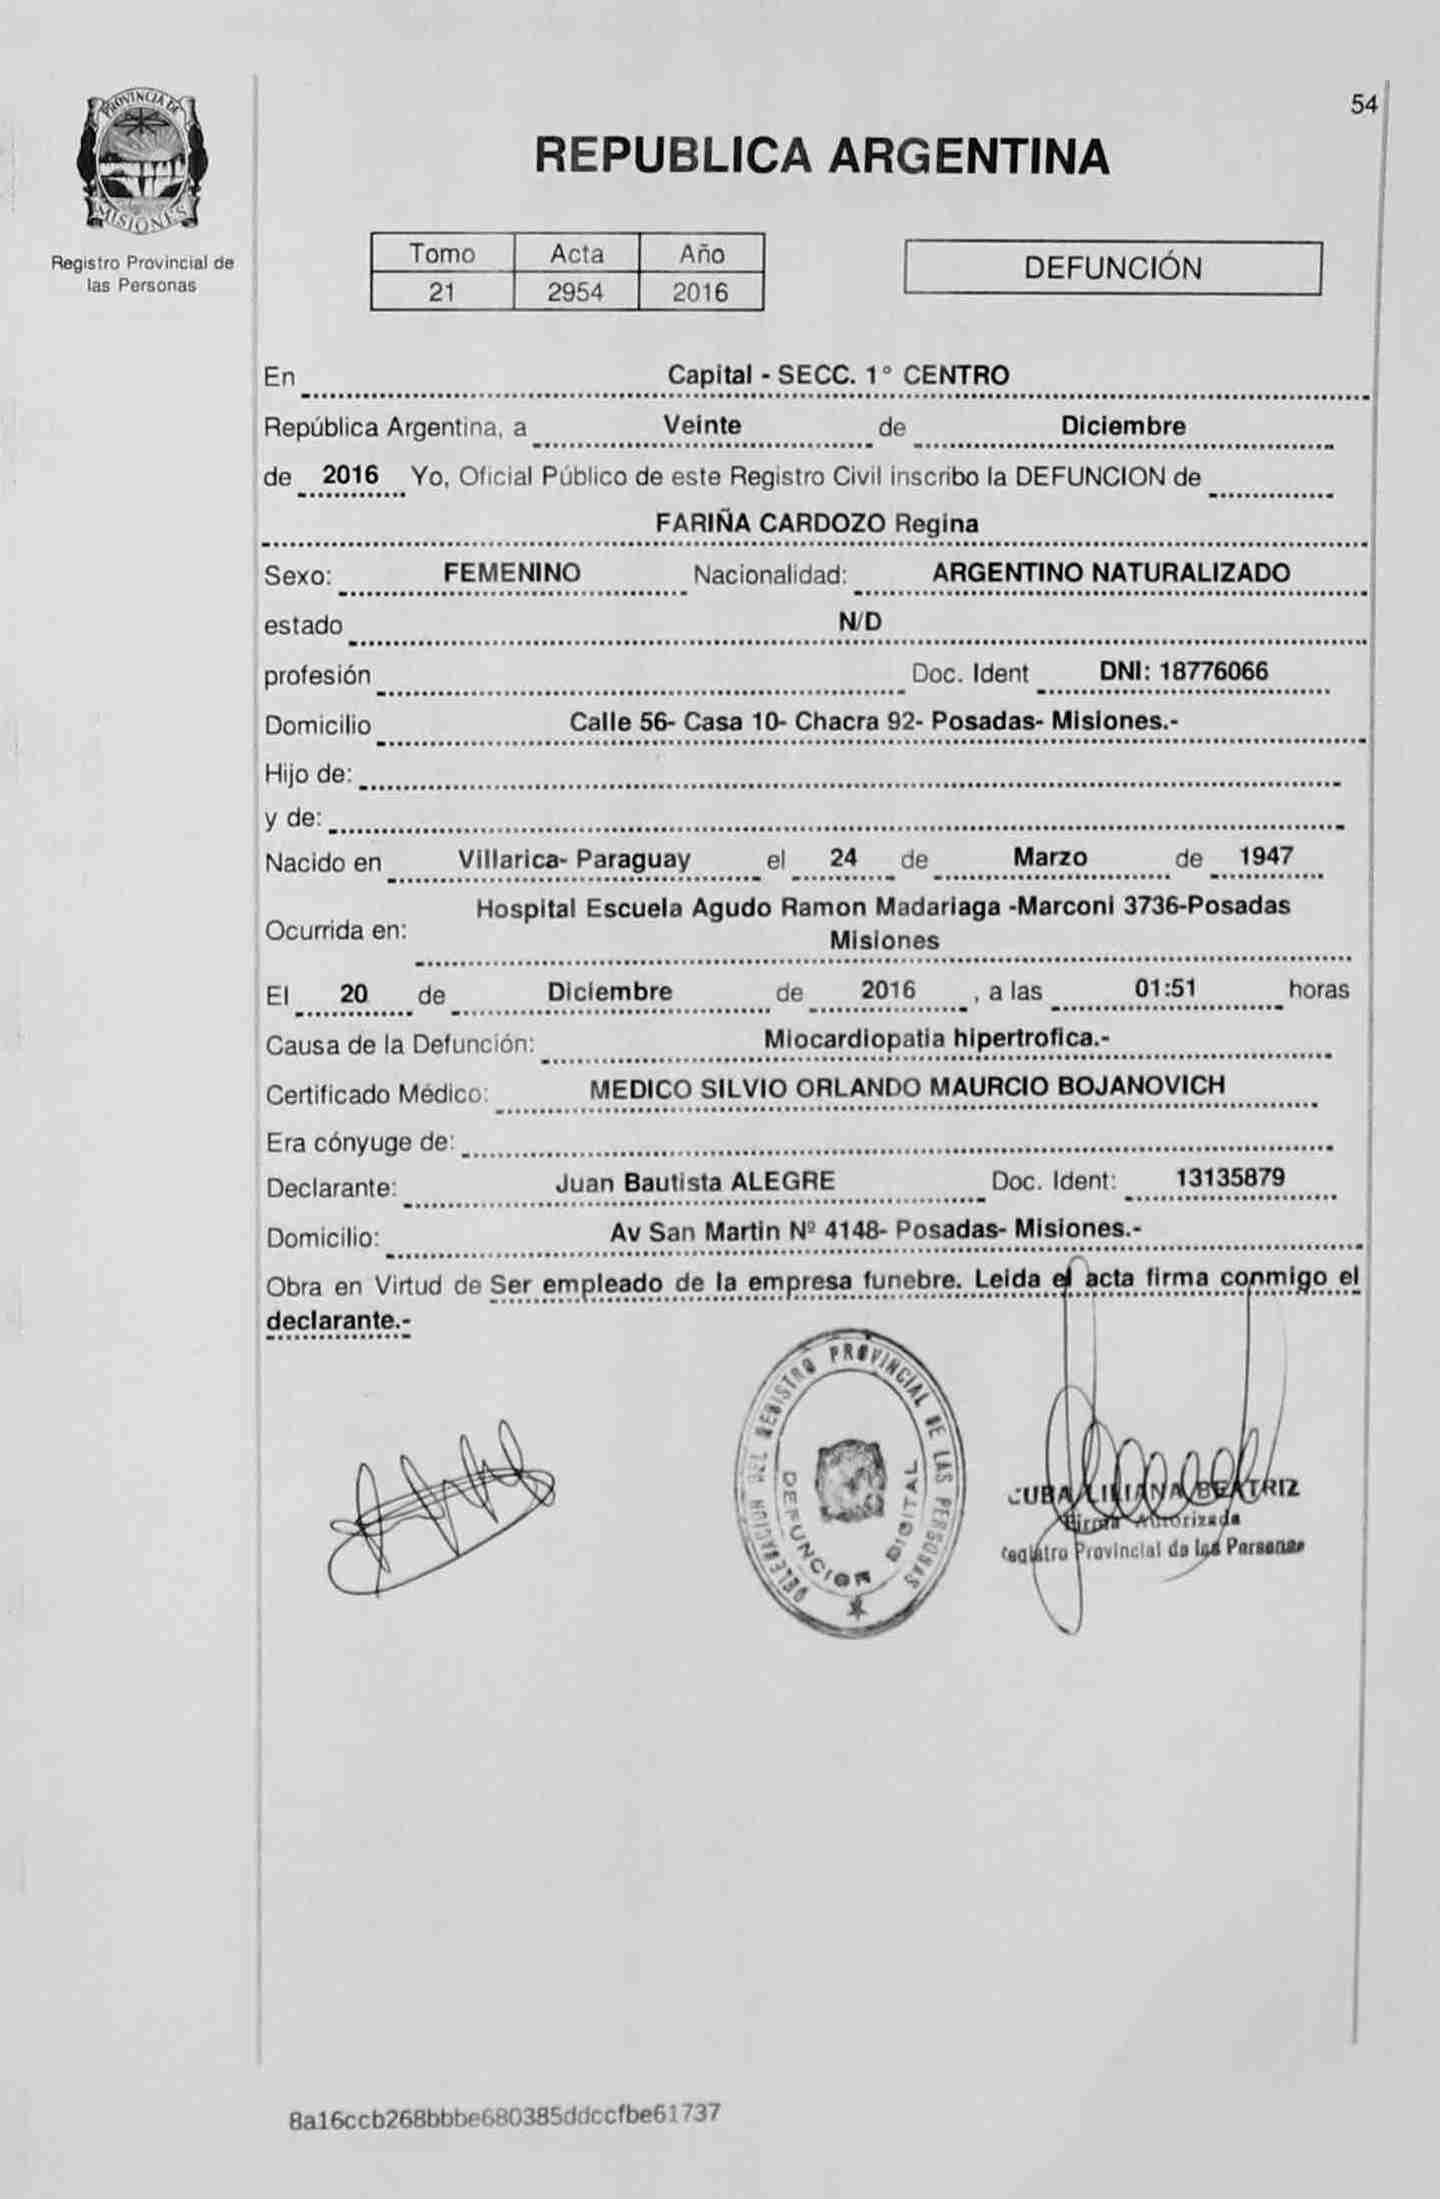 54
PROVINCIA DE
MISIONES
Registro Provincial de
las Personas
REPUBLICA ARGENTINA
Tomo Acta Año
21 2954 2016
DEFUNCIÓN
En Capital - SECC. 1° CENTRO
República Argentina, a Veinte de Diciembre
de 2016 Yo, Oficial Público de este Registro Civil inscribo la DEFUNCION de
FARIÑA CARDOZO Regina
Sexo: FEMENINO Nacionalidad: ARGENTINO NATURALIZADO
estado N/D
profesión Doc. Ident DNI: 18776066
Domicilio Calle 56- Casa 10- Chacra 92- Posadas- Misiones.-
Hijo de:
y de:
Nacido en Villarica- Paraguay el 24 de Marzo de 1947
Hospital Escuela Agudo Ramon Madariaga -Marconi 3736-Posadas
Ocurrida en: Misiones
El 20 de Diciembre de 2016 , a las 01:51 horas
Causa de la Defunción: Miocardiopatia hipertrofica.-
Certificado Médico: MEDICO SILVIO ORLANDO MAURCIO BOJANOVICH
Era cónyuge de:
Declarante: Juan Bautista ALEGRE Doc. Ident: 13135879
Domicilio: Av San Martin Nº 4148- Posadas- Misiones.-
Obra en Virtud de Ser empleado de la empresa funebre. Leida el acta firma conmigo el
declarante.-
DELEGACION DEL REGISTRO PROVINCIAL DE LAS PERSONAS
DEFUNCION DIGITAL
CUBA LILIANA BEATRIZ
Firma Autorizada
Registro Provincial de las Personas
8a16ccb268bbbe680385ddccfbe61737